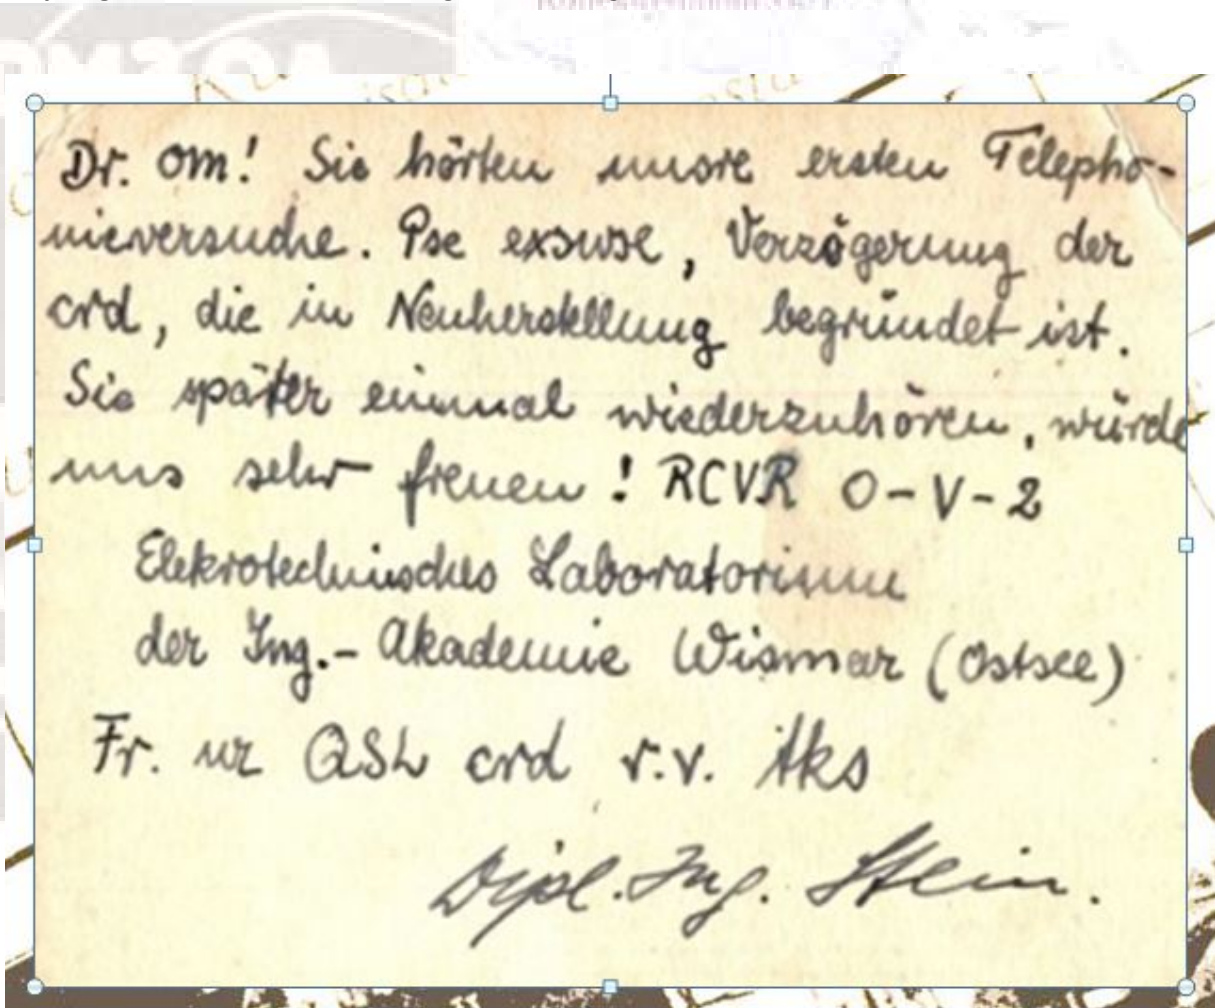 Dr. om! Sie hörten unsre ersten Telepho-
nieversuche. Pse exsuse, Verzögerung der
crd, die in Neuherstellung begründet ist.
Sie später einmal wiederzuhören, würde
uns sehr freuen! RCVR O-V-2
Elekrotechnisches Laboratorium
der Ing.- Akademie Wismar (Ostsee)
Fr. ur QSL crd v.v. tks
Dipl. Ing. Stein.